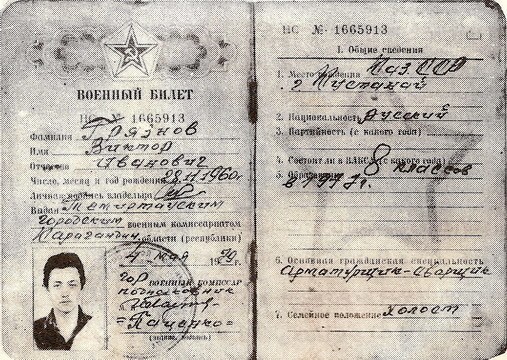 ВОЕННЫЙ БИЛЕТ
НС № 1665913
Фамилия Грязнов
Имя Виктор
Отчество Иванович
Число, месяц и год рождения 28.11.1960г.
Личная подпись владельца
Выдан Темиртауским
городским военным комиссариатом
Карагандин. области (республики)
4 мая 19 г.
Гор ВОЕННЫЙ КОМИССАР
подполковник
(подпись)
НС № 1665913
I. Общие сведения
1. Место рождения Каз.ССР
г Кустанай
2. Национальность русский
3. Партийность (с какого года)
4. Состоит ли в ВЛКСМ (с какого года)
5. Образование 8 классов
в 1977г.
6. Основная гражданская специальность
Арматурщик-сварщик
7. Семейное положение холост